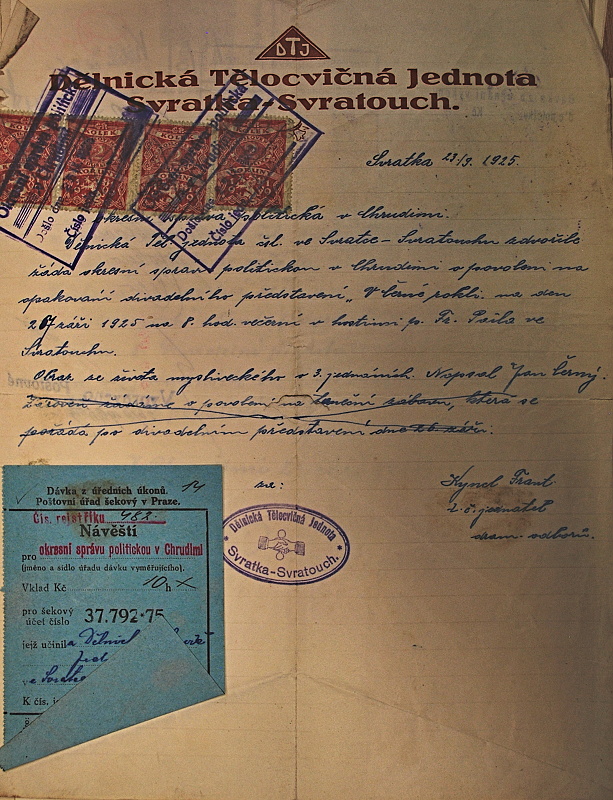 DTJ
Dělnická Tělocvičná Jednota
Svratka-Svratouch.
Svratka 23/9. 1925.
Okresní správa politická v Chrudimi.
Dělnická Těl. jednota čsl. ve Svratce-Svratouchu zdvořile
žádá okresní správu politickou v Chrudimi o povolení na
opakování divadelního představení „V černé rokli. na den
26 září 1925 na 8. hod. večerní v hostinci p. Fr. Pošla ve
Svratouchu.
Obraz ze života mysliveckého v 3. jednáních. Napsal Jan Černý.
Zároveň žádáme o povolení na taneční zábavu, která se
pořádá po divadelním představení dne 26. září.
za:
Kyncl Frant.
t. č. jednatel
dram. odboru.
Dělnická Tělocvičná Jednota
Svratka-Svratouch.
Dávka z úředních úkonů. 14
Poštovní úřad šekový v Praze.
Čís. rejstříku 482.
Návěští
pro okresní správu politickou v Chrudimi
(jméno a sídlo úřadu dávku vyměřujícího).
Vklad Kč 10 h x
pro šekový
účet číslo 37.792-75
jejž učinila Dělnic
jed
ve Svratce
K čís.